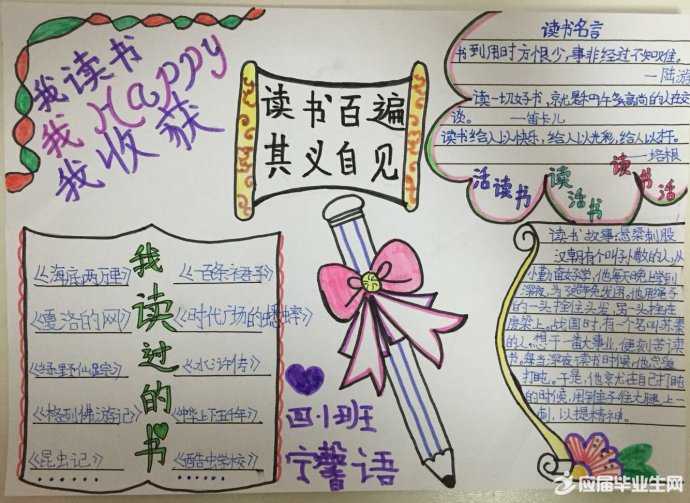 我读书
我Happy
我收获
读书百遍
其义自见
读书名言
书到用时方恨少,事非经过不知难。
—陆游
读一切好书,就是和许多高尚的人在交
谈。 —笛卡儿
读书给人以快乐,给人以光彩,给人以才干。
—培根
活读书
读活书
读书活
我读过的书
《海底两万里》
《夏洛的网》
《绿野仙踪》
《格列佛游记》
《昆虫记》
《时代广场的蟋蟀》
《水浒传》
《中华上下五千年》
《酷虫学校》
四小班
宁馨语
读书故事:悬梁刺股
汉朝有个叫孙敬的人,从
小勤奋好学,他每天晚上学到
深夜,为了避免发困,他用绳子
的一头拴住头发,另一头拴在
房梁上。战国时,有一个名叫苏秦
的人,想干一番大事业,便刻苦读
书。每当深夜读书时候,他总爱
打盹。于是,他就在自己打盹
的时候,用锥子往大腿上一
刺,以提精神。
应届毕业生网